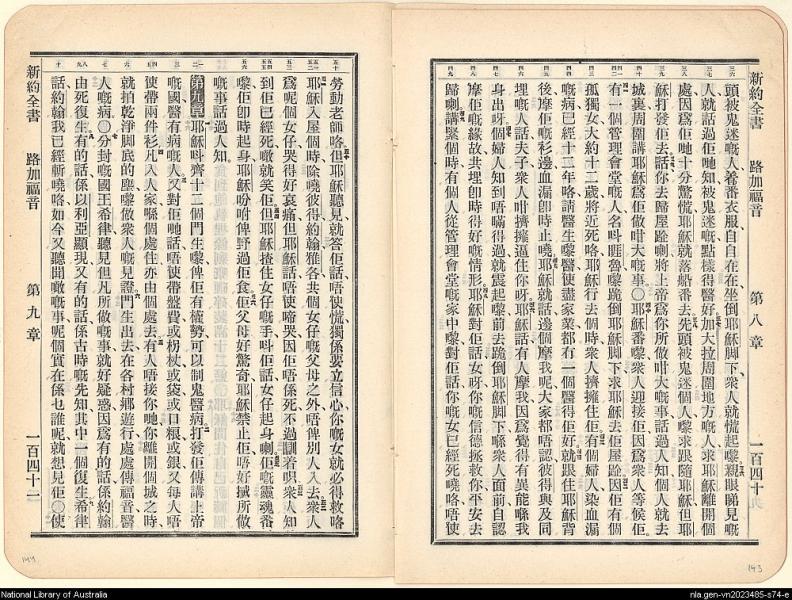 新約全書 路加福音 第八章 一百四十
頭被鬼迷嘅人着番衣服自自在在坐倒耶穌脚下衆人就慌起嚟親眼睇見嘅
人就話過佢哋知被鬼迷嘅點樣得醫好加大拉周圍地方嘅人求耶穌離開個
處因爲佢哋十分驚慌耶穌就落船番去先頭被鬼迷個人嚟求跟隨耶穌但耶
穌打發佢去話你去歸屋跲喇將上帝爲你所做咁大嘅事話過人知個人就去
城裏周圍講耶穌爲佢做咁大嘅事〇耶穌番嚟衆人迎接佢因爲衆人等候佢
有一個管理會堂嘅人名叫睚魯嚟跪倒耶穌脚下求耶穌去佢屋跲因佢有個
孤獨女大約十二歲將近死咯耶穌行去個時衆人擠擁住佢有個婦人染血漏
嘅病已經十二年咯請醫生嚟醫使盡家業都冇一個醫得佢好就跟住耶穌背
後摩佢嘅衫邊血漏卽時止嘵耶穌就話邊個摩我呢大家都唔認彼得與及同
埋嘅人話夫子衆人咁擠擁逼住你呀耶穌話有人摩我因爲覺得有異能喺我
身出呀個婦人知到唔瞞得過就震起嚟前去跪倒耶穌脚下喺衆人面前自認
摩佢嘅緣故共埋卽時得好嘅情形耶穌對佢話女呀你嘅信德拯救你平安去
歸喇講緊個時有個人從管理會堂嘅家中嚟對佢話你嘅女已經死嘵咯唔使
勞動老師咯但耶穌聽見就答佢話唔使慌獨係要立信心你嘅女就必得救咯
耶穌入屋個時除嘵彼得約翰雅各共個女仔嘅父母之外唔俾別人入去衆人
爲呢個女仔哭得好哀痛但耶穌話唔使啼哭因佢唔係死不過瞓着唄衆人知
到佢已經死嘵就笑佢但耶穌揸住女仔嘅手叫佢話女仔起身喇佢嘅靈魂番
嚟佢卽時起身耶穌吩咐俾野過佢食佢父母好驚奇耶穌禁止佢唔好搣所做
嘅事話過人知
第九章耶穌叫齊十二個門生嚟俾佢有權勢可以制鬼醫病打發佢傳講上帝
嘅國醫有病嘅人又對佢哋話唔使帶盤費或柺杖或袋或口糧或銀又每人唔
使帶兩件衫凡入人家喺個處住亦由個處去有人唔接你哋你離開個城之時
就拍乾淨脚底的塵嚟做衆人嘅見證門生出去在各村鄉遊行處處傳福音醫
人嘅病〇分封嘅國王希律聽見但凡所做嘅事就好疑惑因爲有的話係約翰
由死復生有的話係以利亞顯現又有的話係古時嘅先知其中一個復生希律
話約翰我已經斬嘵咯如今又聽聞噉嘅事呢個實在係乜誰呢就想見佢〇使
新約全書 路加福音 第九章 一百四十一
144
143
National Library of Australia
nla.gen-vn2023485-s74-e